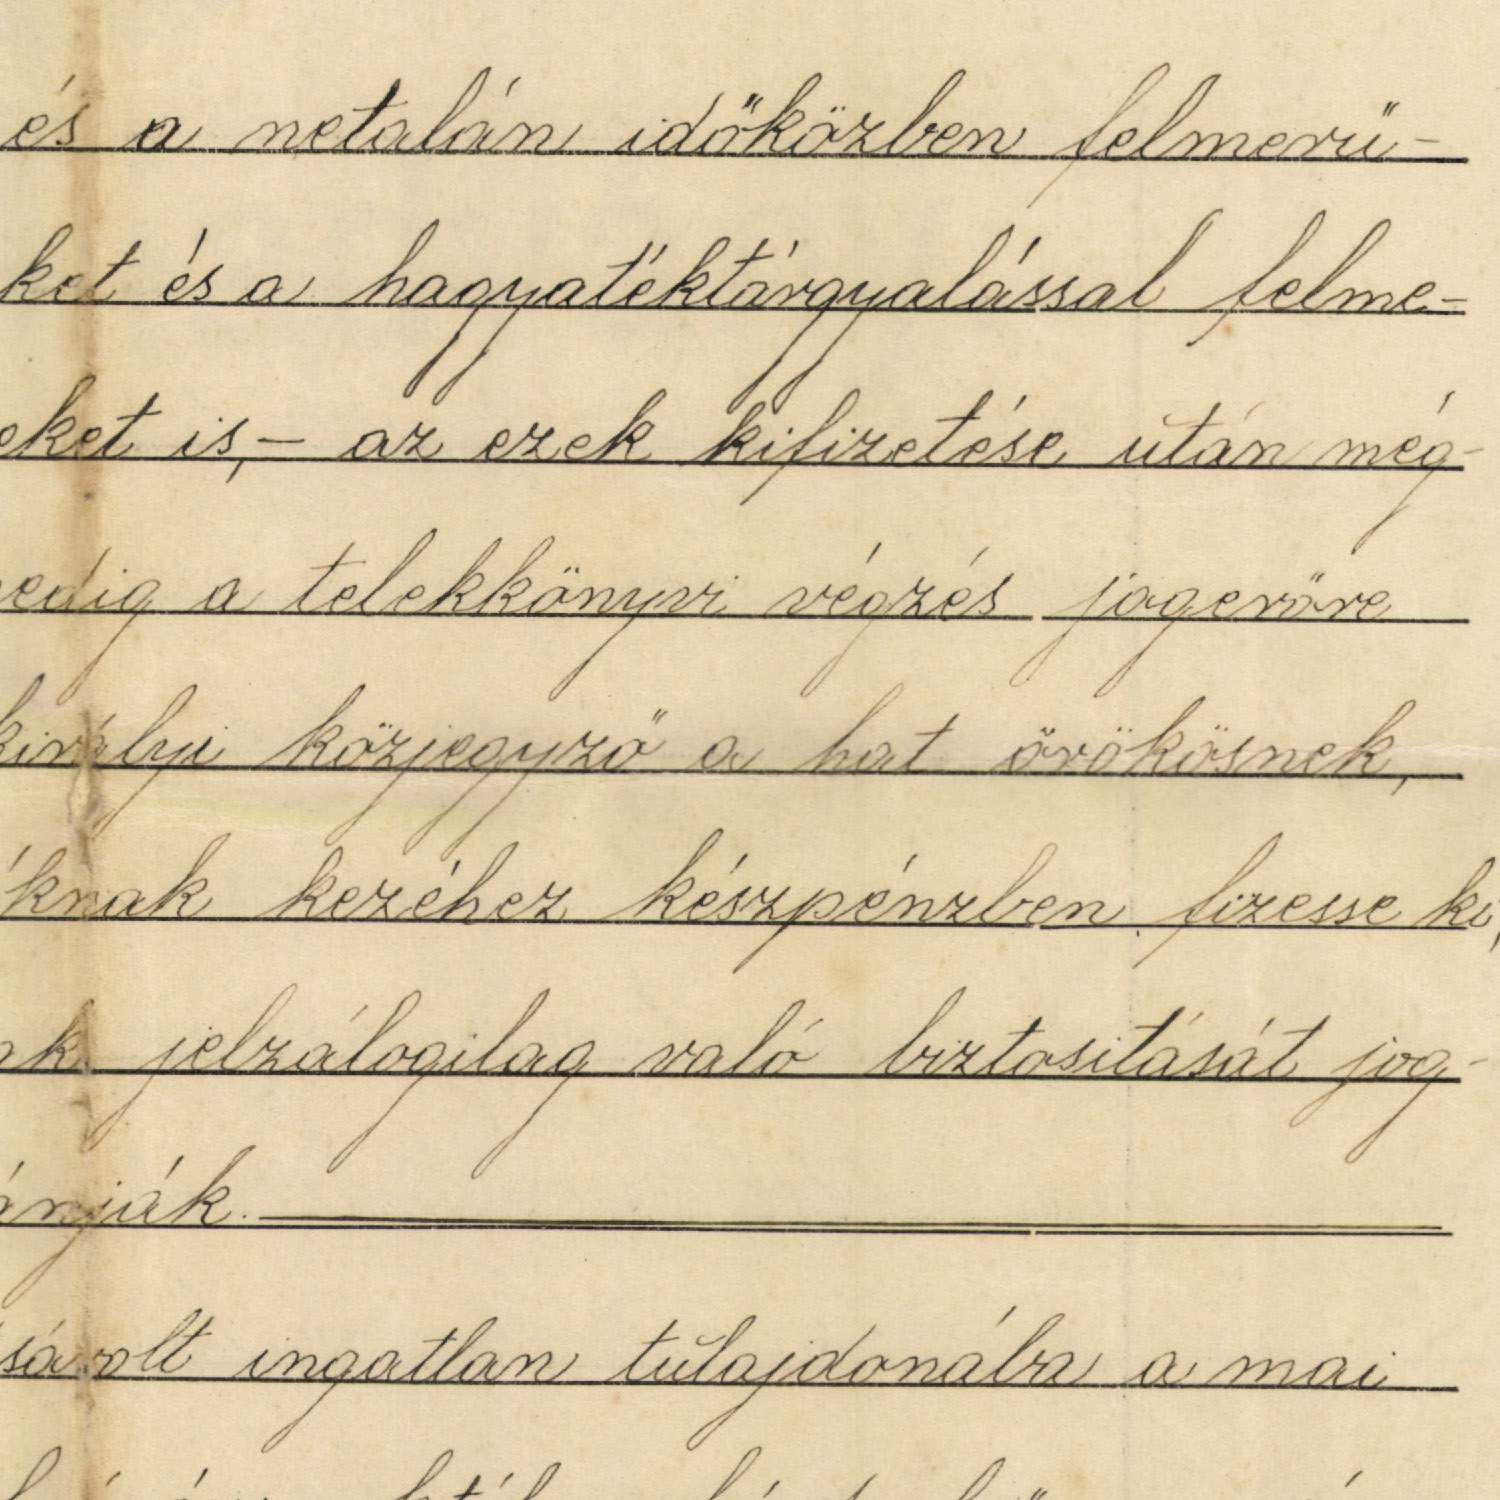 és a netalán időközben felmerü-
ket és a hagyatéktárgyalással felme-
eket is,- az ezek kifizetése után még-
edig a telekkönyvi végzés jogerőre
királyi közjegyző a hat örökösnek,
áknak kezéhez készpénzben fizesse ki,
ak jelzálogilag való biztositását jog-
ánják.
sárolt ingatlan tulajdonába a mai